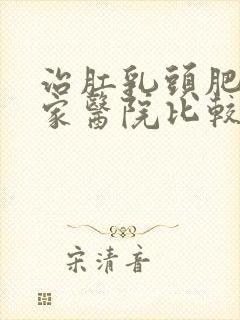 治肛乳頭肥
家醫院比較
宋清音